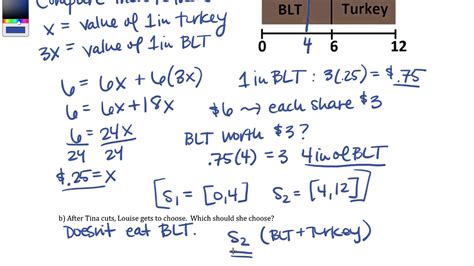 x = value of 1 in turkey
3x = value of 1 in BLT
BLT Turkey
0 4 6 12
6 = 6x + 6(3x)
6 = 6x + 18x
6 = 24x
24 24
$.25 = x
1 in BLT : 3(.25) = $.75
$6 ⇝ each share $3
BLT worth $3?
.75(4) = 3 4 in of BLT
[S₁ = [0,4] S₂ = [4,12]]
b) After Tina cuts, Louise gets to choose. Which should she choose?
Doesn't eat BLT. S₂ (BLT + Turkey)